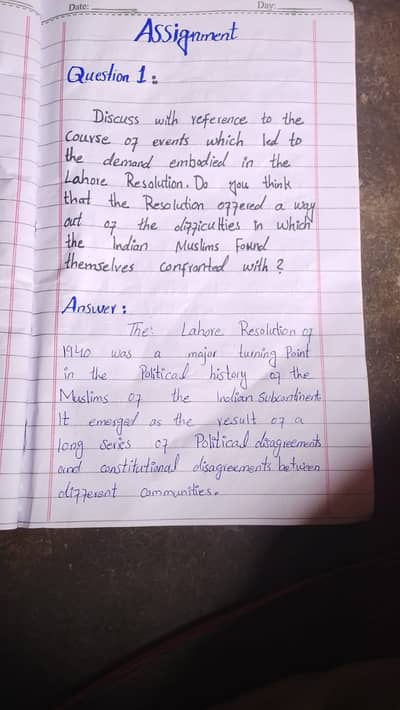 Date: Day:
Assignment
Question 1 :
Discuss with reference to the
course of events which led to
the demand embodied in the
Lahore Resolution. Do you think
that the Resolution offered a way
out of the difficulties in which
the Indian Muslims Found
themselves confronted with ?
Answer :
The: Lahore Resolution of
1940 was a major turning Point
in the Political history of the
Muslims of the Indian Subcontinent
It emerged as the result of a
long series of Political disagreements
and constitutional disagreements between
different communities.